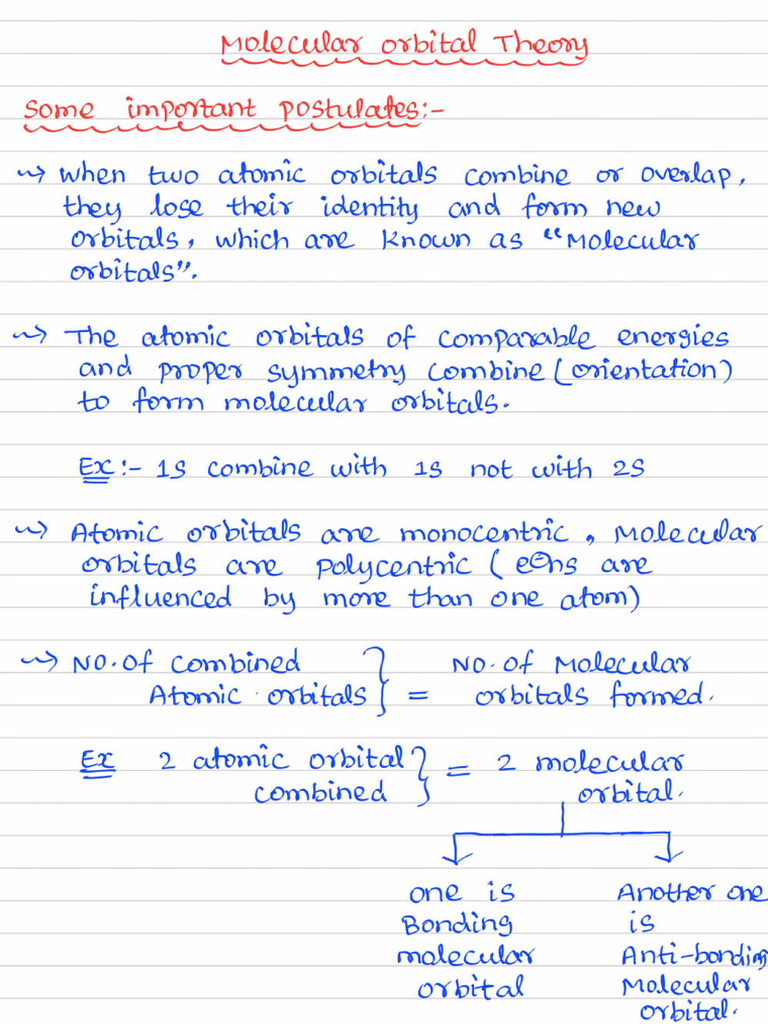 Molecular orbital Theory
Some important postulates:-
~> When two atomic orbitals combine or overlap,
they lose their identity and form new
orbitals, which are known as "Molecular
orbitals".
~> The atomic orbitals of comparable energies
and proper symmetry combine (orientation)
to form molecular orbitals.
Ex :- 1s combine with 1s not with 2s
~> Atomic orbitals are monocentric, Molecular
orbitals are polycentric (e⊖ns are
influenced by more than one atom)
~> No. of combined } No. of Molecular
Atomic orbitals } = orbitals formed.
Ex 2 atomic orbital } = 2 molecular
combined } orbital.
one is Another one
Bonding is
molecular Anti-bonding
orbital Molecular
orbital.